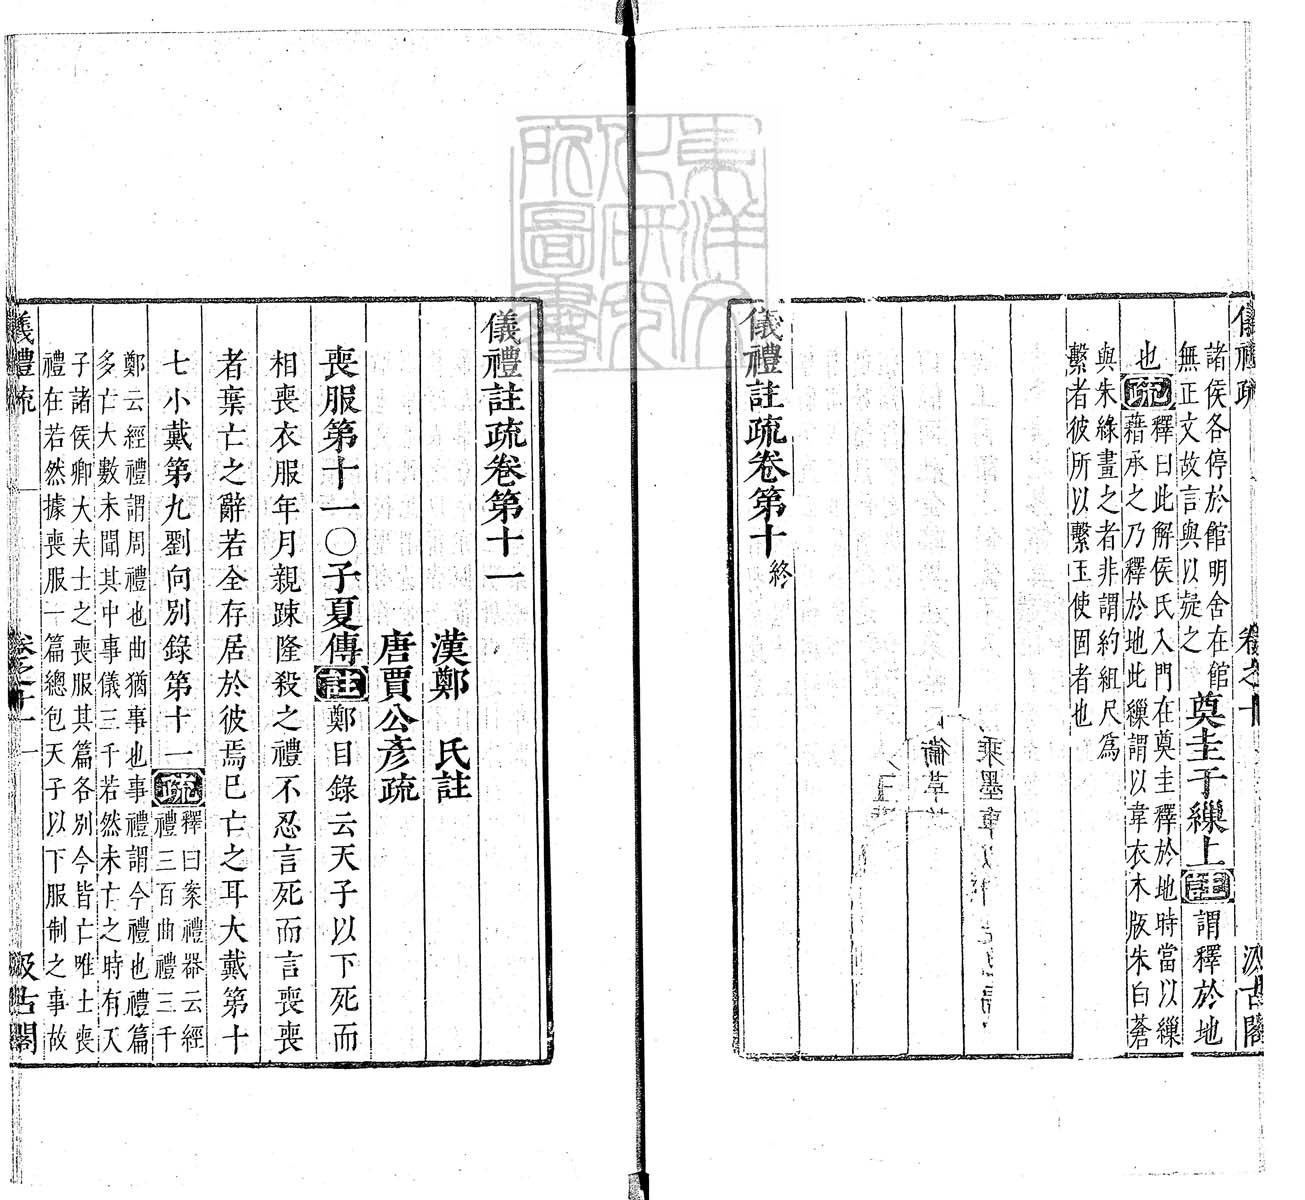 儀禮疏
卷之十
汲古閣
諸侯各停於館明舍在館
無正文故言與以疑之
奠圭于繅上
註
謂釋於地
也
疏
釋曰此解侯氏入門在奠圭釋於地時當以繅
藉承之乃釋於地此繅謂以韋衣木版朱白蒼
與朱綠畫之者非謂約組尺爲
繫者彼所以繫玉使固者也
儀禮註疏卷第十
終
東洋文
化研究
所圖書
儀禮註疏卷第十一
漢鄭 氏註
唐賈公彥疏
喪服第十一〇子夏傳
註
鄭目錄云天子以下死而
相喪衣服年月親踈隆殺之禮不忍言死而言喪喪
者葉亡之辭若全存居於彼焉巳亡之耳大戴第十
七小戴第九劉向別錄第十一
疏
釋曰案禮器云經
禮三百曲禮三千
鄭云經禮謂周禮也曲猶事也事禮謂今禮也禮篇
多亡大數未聞其中事儀三千若然未亡之時有天
子諸侯卿大夫士之喪服其篇各別今皆亡唯士喪
禮在若然據喪服一篇總包天子以下服制之事故
儀禮疏
卷之十一
一
汲古閣